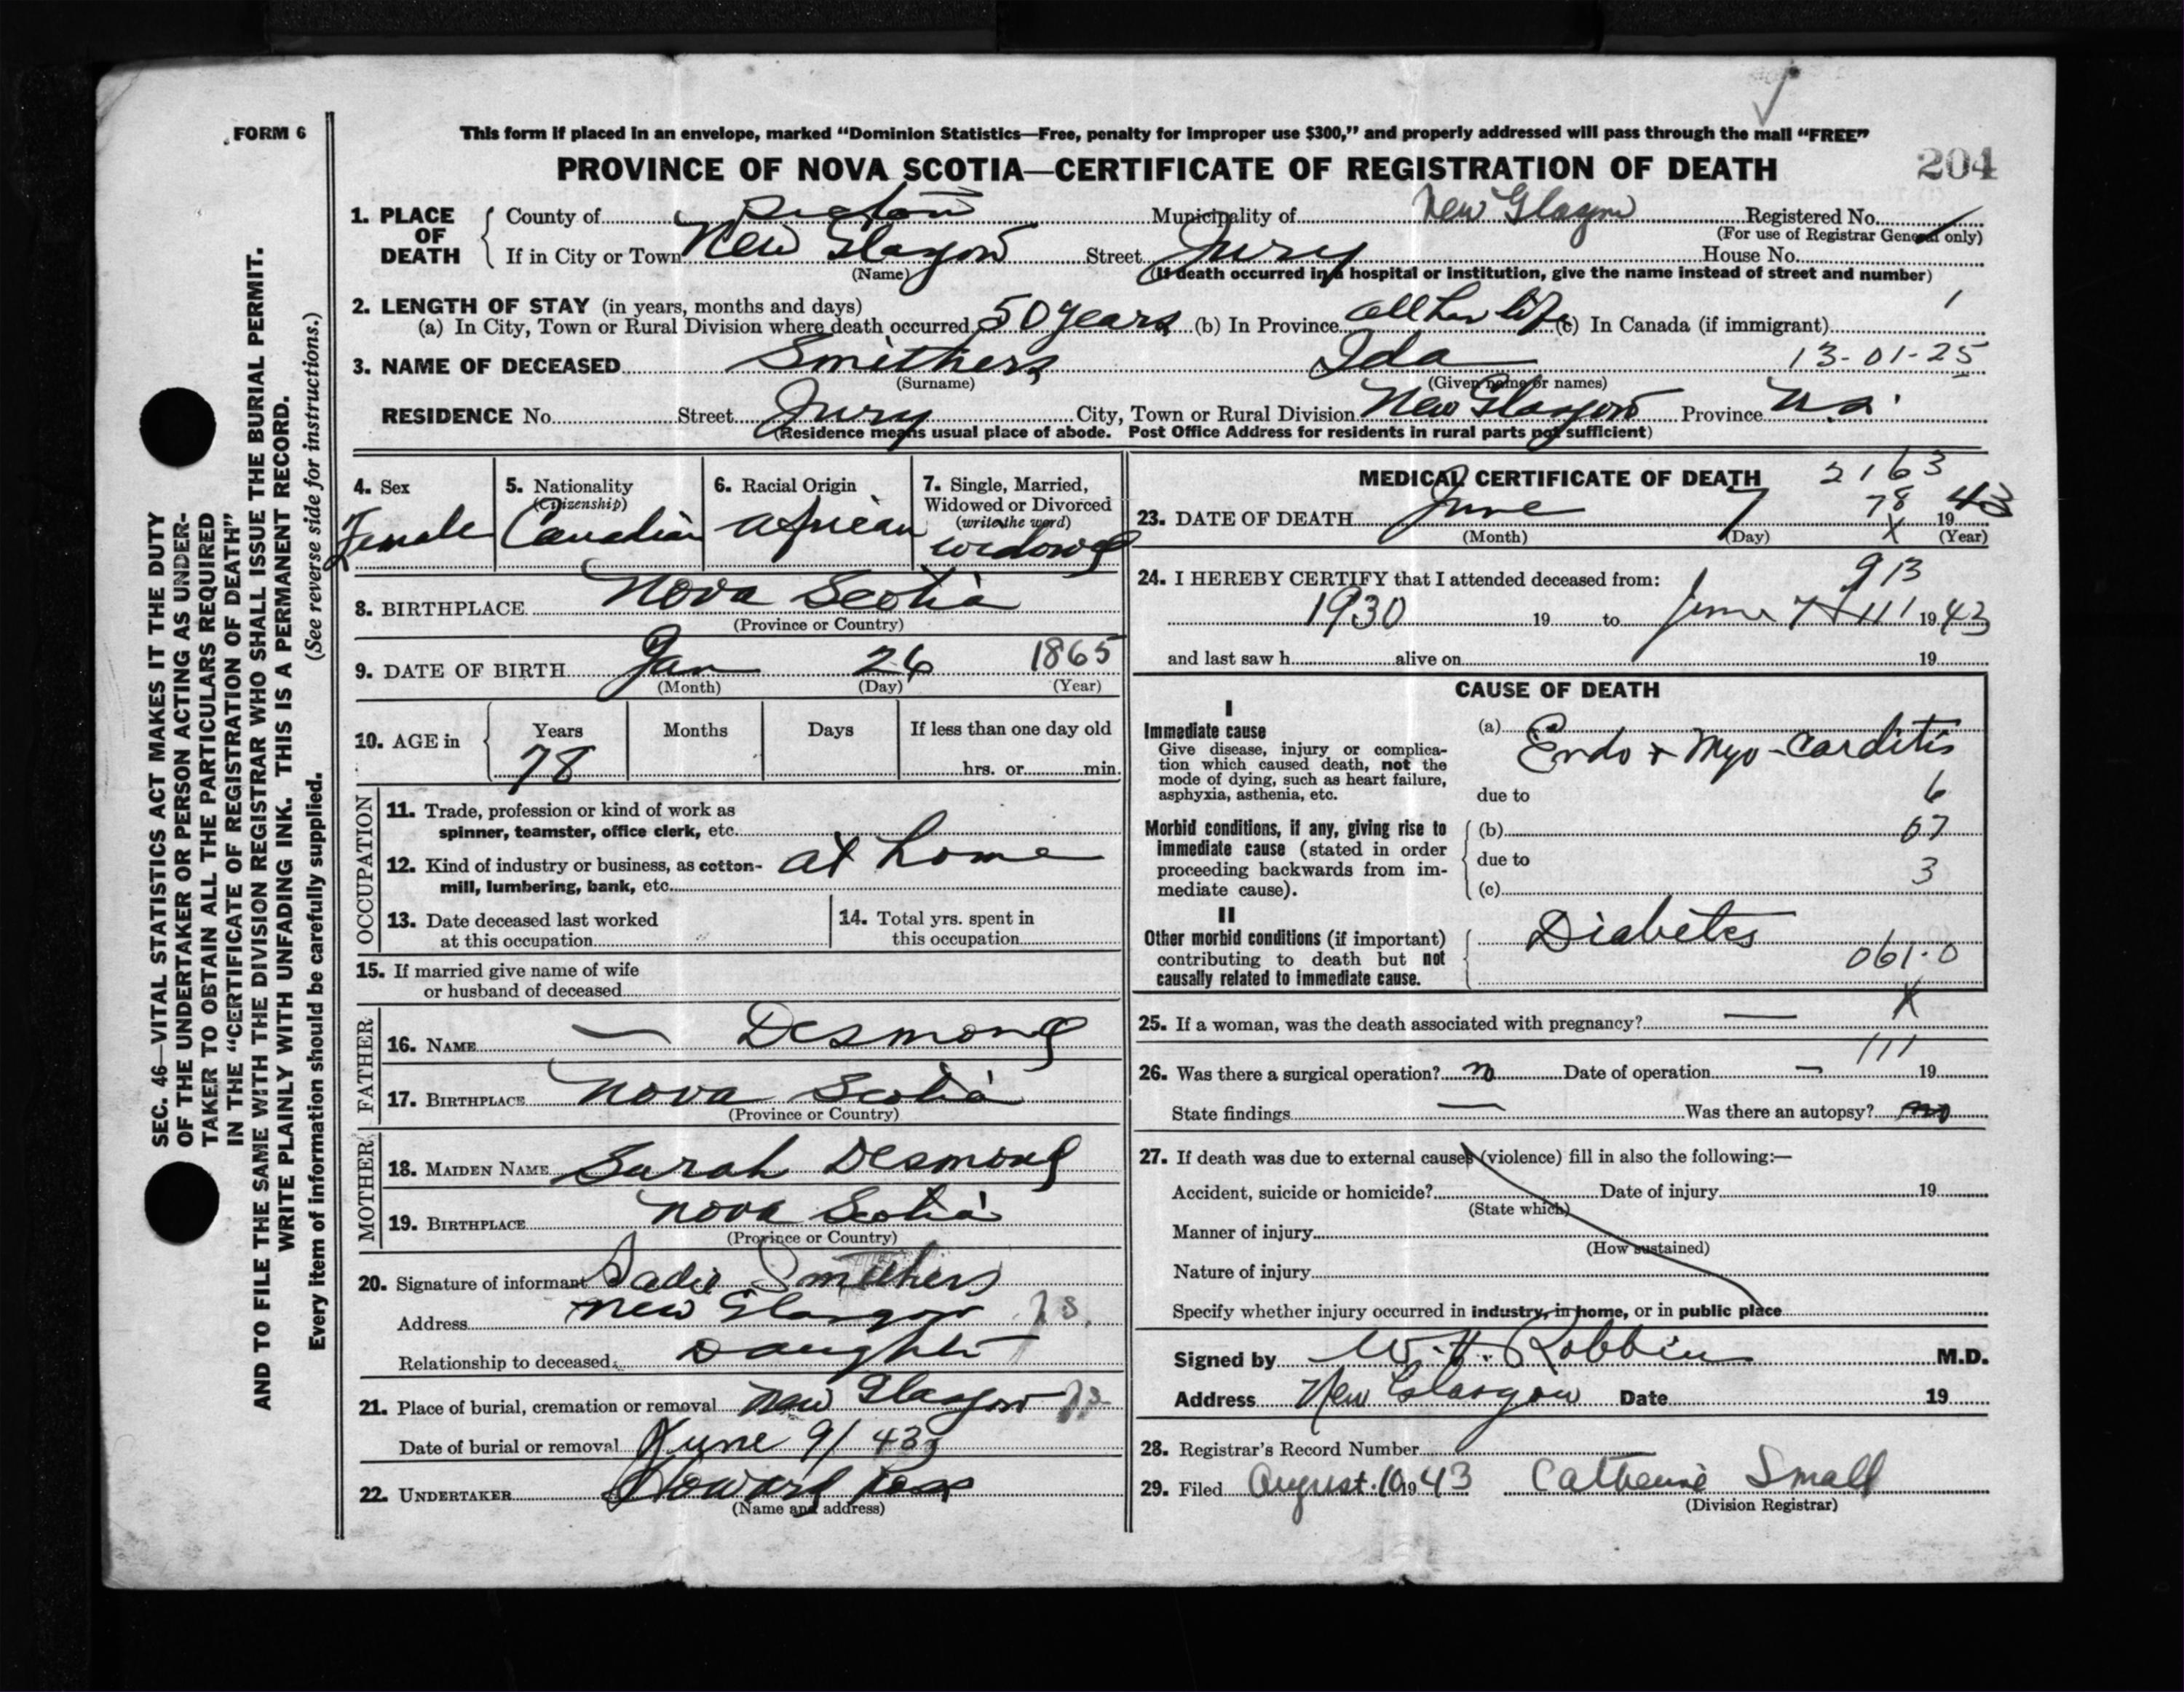 FORM 6
This form if placed in an envelope, marked “Dominion Statistics—Free, penalty for improper use $300,” and properly addressed will pass through the mail “FREE”
PROVINCE OF NOVA SCOTIA—CERTIFICATE OF REGISTRATION OF DEATH
204
1. PLACE OF DEATH
County of Pictou Municipality of New Glasgow Registered No.
(For use of Registrar General only)
If in City or Town New Glasgow Street Jury House No.
(Name) (If death occurred in a hospital or institution, give the name instead of street and number)
2. LENGTH OF STAY (in years, months and days)
(a) In City, Town or Rural Division where death occurred 50 years (b) In Province all her life (c) In Canada (if immigrant)
3. NAME OF DECEASED Smithers Ida 13-01-25
(Surname) (Given name or names)
RESIDENCE No. Street Jury City, Town or Rural Division New Glasgow Province N.S.
(Residence means usual place of abode. Post Office Address for residents in rural parts not sufficient)
4. Sex
Female
5. Nationality
(Citizenship)
Canadian
6. Racial Origin
African
7. Single, Married,
Widowed or Divorced
(write the word)
widowed
8. BIRTHPLACE Nova Scotia
(Province or Country)
9. DATE OF BIRTH Jan 26 1865
(Month) (Day) (Year)
10. AGE in
Years Months Days If less than one day old
78 hrs. or min.
OCCUPATION
11. Trade, profession or kind of work as
spinner, teamster, office clerk, etc.
12. Kind of industry or business, as cotton- at home
mill, lumbering, bank, etc.
13. Date deceased last worked
at this occupation
14. Total yrs. spent in
this occupation
15. If married give name of wife
or husband of deceased
FATHER
16. NAME — Desmond
17. BIRTHPLACE Nova Scotia
(Province or Country)
MOTHER
18. MAIDEN NAME Sarah Desmond
19. BIRTHPLACE Nova Scotia
(Province or Country)
20. Signature of informant Sadie Smithers
Address New Glasgow
Relationship to deceased Daughter
21. Place of burial, cremation or removal New Glasgow
Date of burial or removal June 9/43
22. UNDERTAKER Howard
(Name and address)
MEDICAL CERTIFICATE OF DEATH 2163
78
23. DATE OF DEATH June 7 1943
(Month) (Day) X (Year)
24. I HEREBY CERTIFY that I attended deceased from: 913
1930 19 to June 7 111 1943
and last saw h alive on 19
CAUSE OF DEATH
I
Immediate cause
Give disease, injury or complica-
tion which caused death, not the
mode of dying, such as heart failure,
asphyxia, asthenia, etc.
(a) Endo + Myo-carditis
due to 6
Morbid conditions, if any, giving rise to
immediate cause (stated in order
proceeding backwards from im-
mediate cause).
(b) 67
due to
(c) 3
II
Other morbid conditions (if important)
contributing to death but not
causally related to immediate cause.
Diabetes
061.0
X
25. If a woman, was the death associated with pregnancy? —
111
26. Was there a surgical operation? no Date of operation — 19
State findings — Was there an autopsy? no
27. If death was due to external causes (violence) fill in also the following:—
Accident, suicide or homicide? Date of injury 19
(State which)
Manner of injury
(How sustained)
Nature of injury
Specify whether injury occurred in industry, in home, or in public place
Signed by W. H. Robbins M.D.
Address New Glasgow Date 19
28. Registrar's Record Number
29. Filed August 10 1943 Catherine Small
(Division Registrar)
SEC. 46—VITAL STATISTICS ACT MAKES IT THE DUTY
OF THE UNDERTAKER OR PERSON ACTING AS UNDER-
TAKER TO OBTAIN ALL THE PARTICULARS REQUIRED
IN THE “CERTIFICATE OF REGISTRATION OF DEATH”
AND TO FILE THE SAME WITH THE DIVISION REGISTRAR WHO SHALL ISSUE THE BURIAL PERMIT.
WRITE PLAINLY WITH UNFADING INK. THIS IS A PERMANENT RECORD.
Every item of information should be carefully supplied. (See reverse side for instructions.)